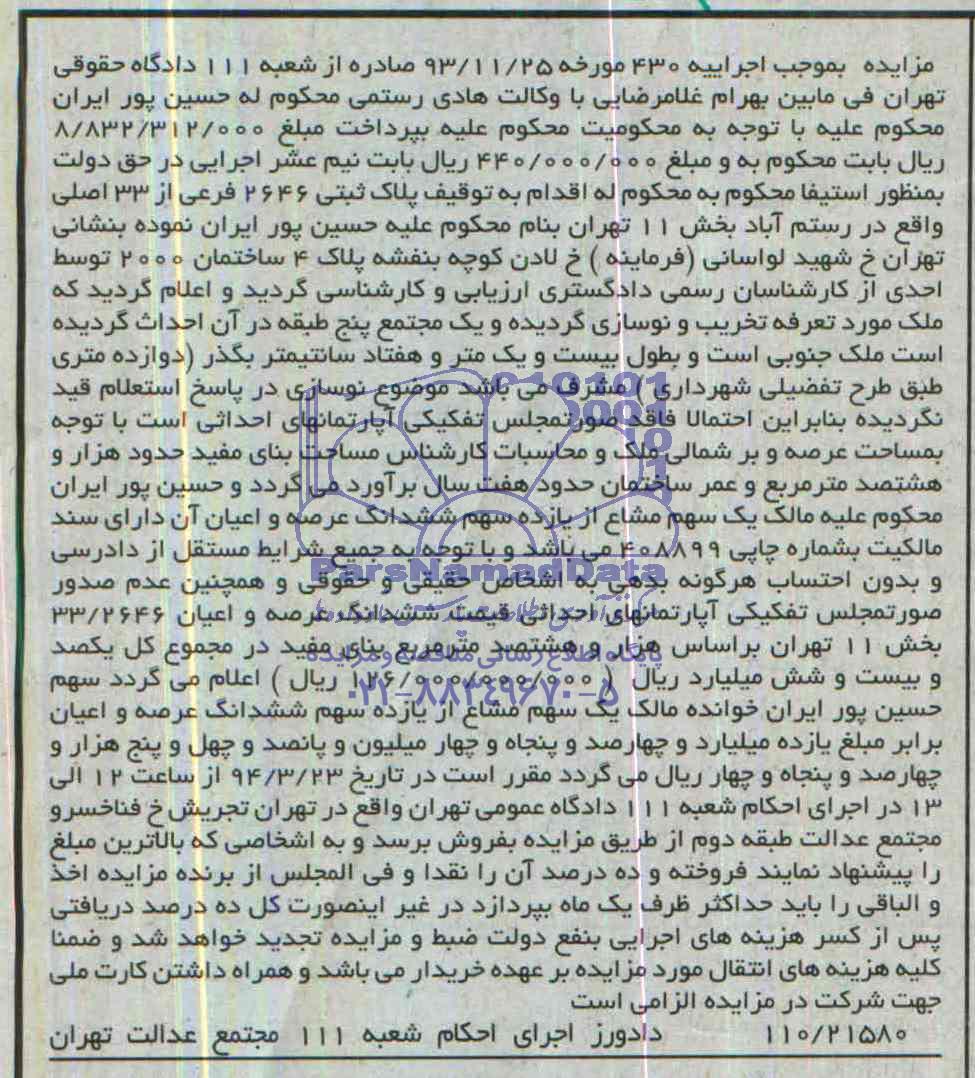 مزایده بموجب اجراییه ۴۳۰ مورخه ۹۳/۱۱/۲۵ صادره از شعبه ۱۱۱ دادگاه حقوقی
تهران فی مابین بهرام غلامرضایی با وکالت هادی رستمی محکوم له حسین پور ایران
محکوم علیه با توجه به محکومیت محکوم علیه بپرداخت مبلغ ۸/۸۳۲/۳۱۲/۰۰۰
ریال بابت محکوم به و مبلغ ۴۴۰/۰۰۰/۰۰۰ ریال بابت نیم عشر اجرایی در حق دولت
بمنظور استیفا محکوم به محکوم له اقدام به توقیف پلاک ثبتی ۲۶۴۶ فرعی از ۳۳ اصلی
واقع در رستم آباد بخش ۱۱ تهران بنام محکوم علیه حسین پور ایران نموده بنشانی
تهران خ شهید لواسانی (فرمانیه) خ لادن کوچه بنفشه پلاک ۴ ساختمان ۲۰۰۰ توسط
احدی از کارشناسان رسمی دادگستری ارزیابی و کارشناسی گردید و اعلام گردید که
ملک مورد تعرفه تخریب و نوسازی گردیده و یک مجتمع پنج طبقه در آن احداث گردیده
است ملک جنوبی است و بطول بیست و یک متر و هفتاد سانتیمتر بگذر (دوازده متری
طبق طرح تفضیلی شهرداری) مشرف می باشد موضوع نوسازی در پاسخ استعلام قید
نگردیده بنابراین احتمالا فاقد صورتمجلس تفکیکی آپارتمانهای احداثی است با توجه
بمساحت عرصه و بر شمالی ملک و محاسبات کارشناس مساحت بنای مفید حدود هزار و
هشتصد مترمربع و عمر ساختمان حدود هفت سال برآورد می گردد و حسین پور ایران
محکوم علیه مالک یک سهم مشاع از یازده سهم ششدانگ عرصه و اعیان آن دارای سند
مالکیت بشماره چاپی ۴۰۸۸۹۹ می باشد و با توجه به جمیع شرایط مستقل از دادرسی
و بدون احتساب هرگونه بدهی به اشخاص حقیقی و حقوقی و همچنین عدم صدور
صورتمجلس تفکیکی آپارتمانهای احداثی قیمت ششدانگ عرصه و اعیان ۳۳/۲۶۴۶
بخش ۱۱ تهران براساس هزار و هشتصد مترمربع بنای مفید در مجموع کل یکصد
و بیست و شش میلیارد ریال (۱۲۶/۰۰۰/۰۰۰/۰۰۰ ریال) اعلام می گردد سهم
حسین پور ایران خوانده مالک یک سهم مشاع از یازده سهم ششدانگ عرصه و اعیان
برابر مبلغ یازده میلیارد و چهارصد و پنجاه و چهار میلیون و پانصد و چهل و پنج هزار و
چهارصد و پنجاه و چهار ریال می گردد مقرر است در تاریخ ۹۴/۳/۲۳ از ساعت ۱۲ الی
۱۳ در اجرای احکام شعبه ۱۱۱ دادگاه عمومی تهران واقع در تهران تجریش خ فناخسرو
مجتمع عدالت طبقه دوم از طریق مزایده بفروش برسد و به اشخاصی که بالاترین مبلغ
را پیشنهاد نمایند فروخته و ده درصد آن را نقدا و فی المجلس از برنده مزایده اخذ
و الباقی را باید حداکثر ظرف یک ماه بپردازد در غیر اینصورت کل ده درصد دریافتی
پس از کسر هزینه های اجرایی بنفع دولت ضبط و مزایده تجدید خواهد شد و ضمنا
کلیه هزینه های انتقال مورد مزایده بر عهده خریدار می باشد و همراه داشتن کارت ملی
جهت شرکت در مزایده الزامی است
۱۱۰/۲۱۵۸۰ دادورز اجرای احکام شعبه ۱۱۱ مجتمع عدالت تهران
ParsNamadData
پایگاه اطلاع رسانی مناقصه و مزایده
۰۲۱-۸۸۳۴۹۶۷۰-۵